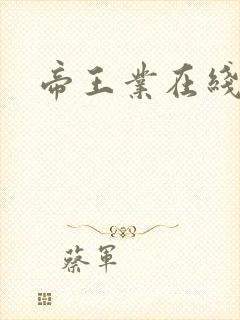 帝王業在綫
蔡軍